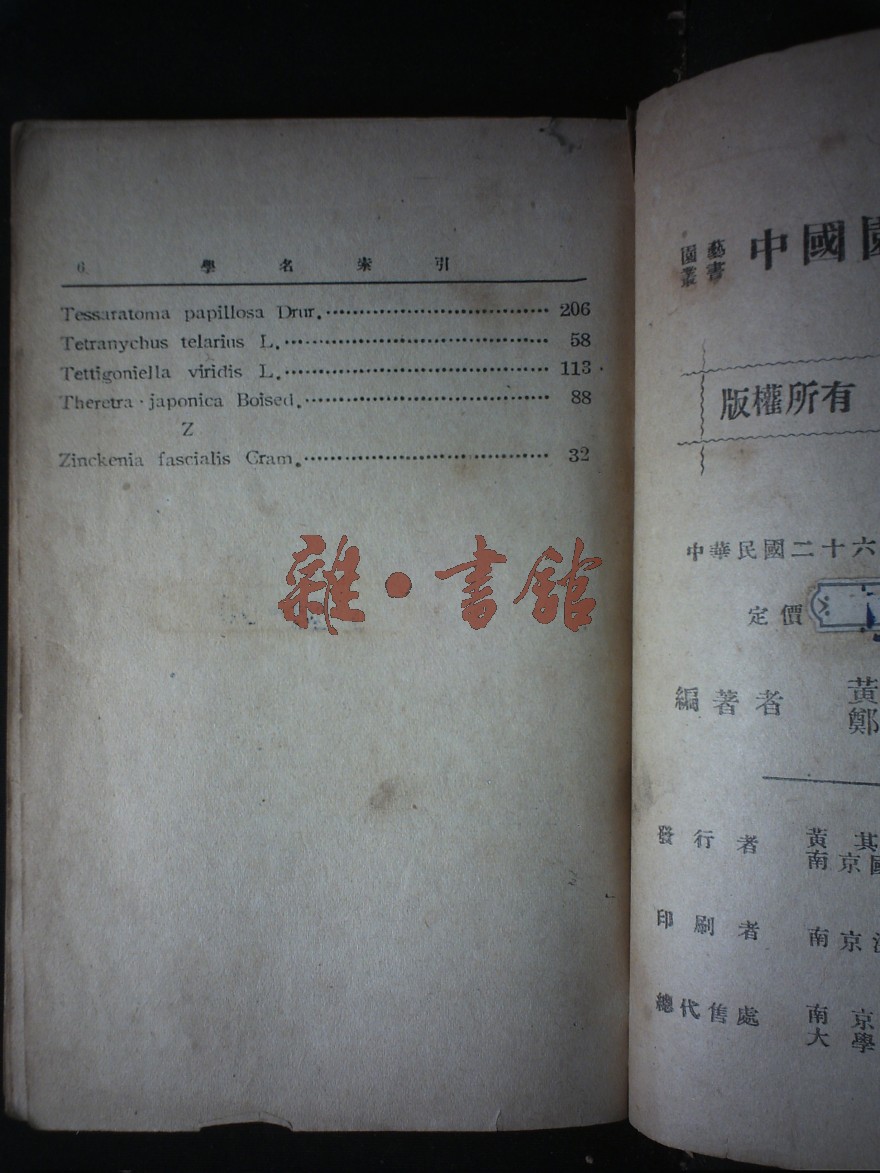 6 學名索引
Tessaratoma papillosa Drur. 206
Tetranychus telarius L. 58
Tettigoniella viridis L. 113
Theretra japonica Boised. 88
Z
Zinckenia fascialis Cram. 32
雜·書館
園藝叢書
中國園
版權所有
中華民國二十六
定價
編著者 黃
鄭
發行者 黃其
南京國
印刷者 南京
總代售處 南京
大學